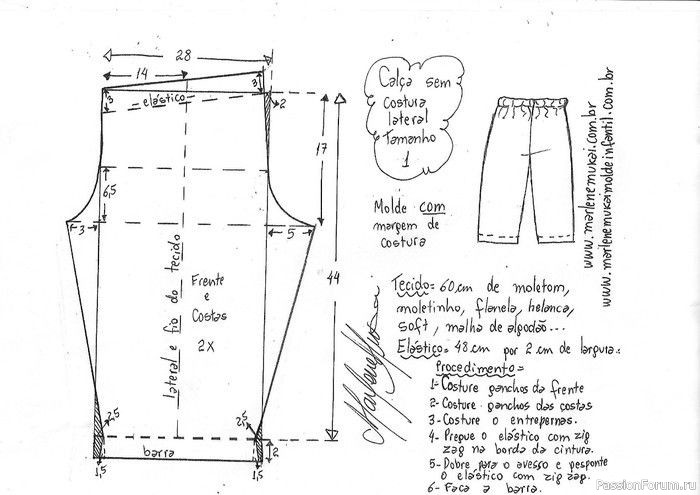 28
14
3
3
elástico
2
17
6,5
3
5
44
lateral e fio do tecido
Frente
e
Costas
2X
2,5
2,5
barra
2
1,5
1,5
Calça sem
costura
lateral
Tamanho
1
Molde com
margem de
costura
www.marlenemukai.com.br
www.marlenemukaimoldeinfantil.com.br
Tecido= 60cm de moletom,
moletinho, flanela, helanca,
soft, malha de algodão...
Elástico= 48cm por 2cm de largura.
Procedimento=
1- Costure ganchos da frente
2- Costure ganchos das costas
3- Costure o entrepernas.
4- Pregue o elástico com zig
zag na borda da cintura.
5- Dobre para o avesso e pesponte
o elástico com zig zag.
6- Faça a barra.
PassionForum.ru